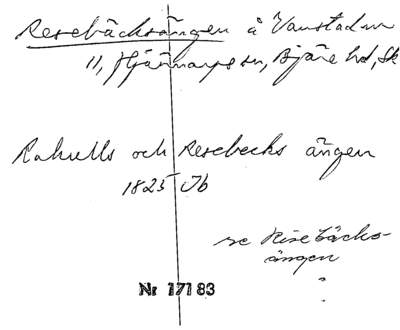 Resebäcksängen å Vanstad nr
11, Hjärnarps sn, Bjäre hd, Sk
Rakulls och Resebecks ängen
1825 Ob
se Risebäcks-
ängen
Nr 17183